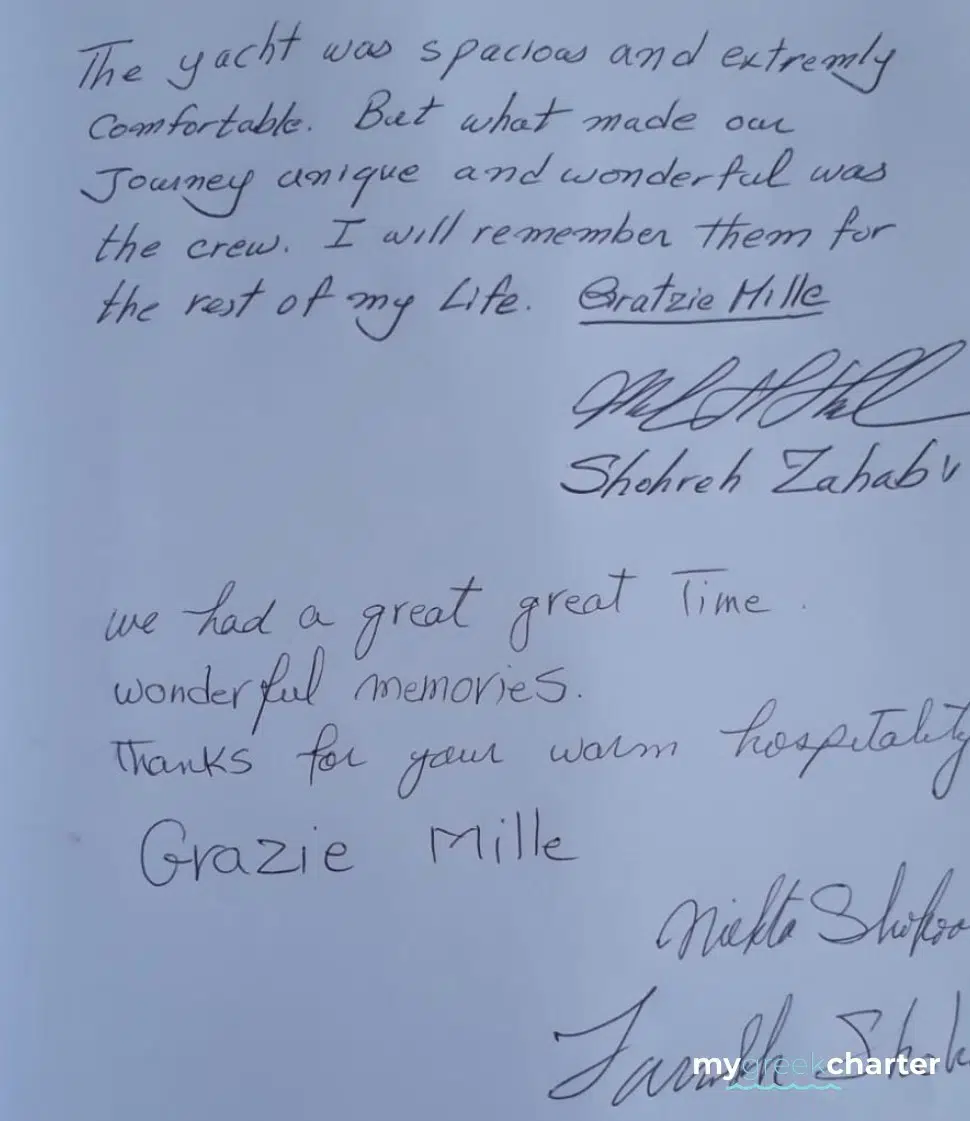 The yacht was spacious and extremly
Comfortable. But what made our
Journey unique and wonderful was
the crew. I will remember them for
the rest of my Life. Gratzie Mille
Shohreh Zahabi
we had a great great Time.
wonderful memories.
Thanks for your warm hospitality
Grazie Mille
mygreekcharter